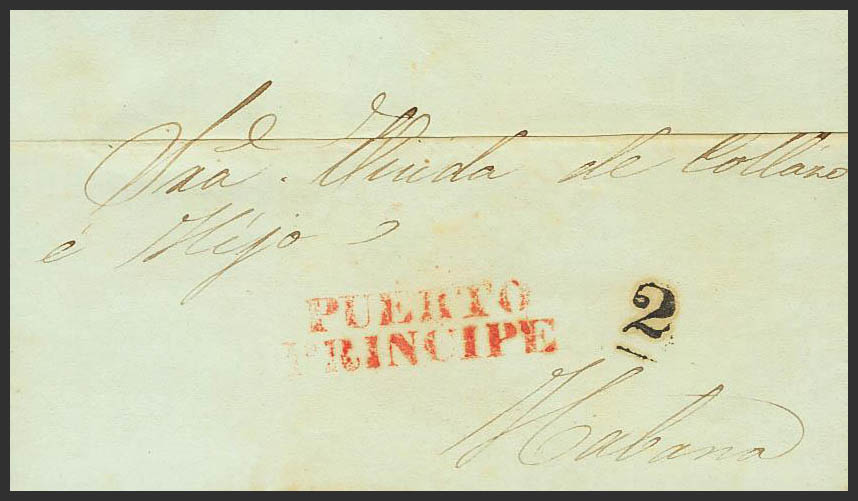 Sra. Viuda de Collazo
é Hijo
PUERTO
PRINCIPE
2
Habana